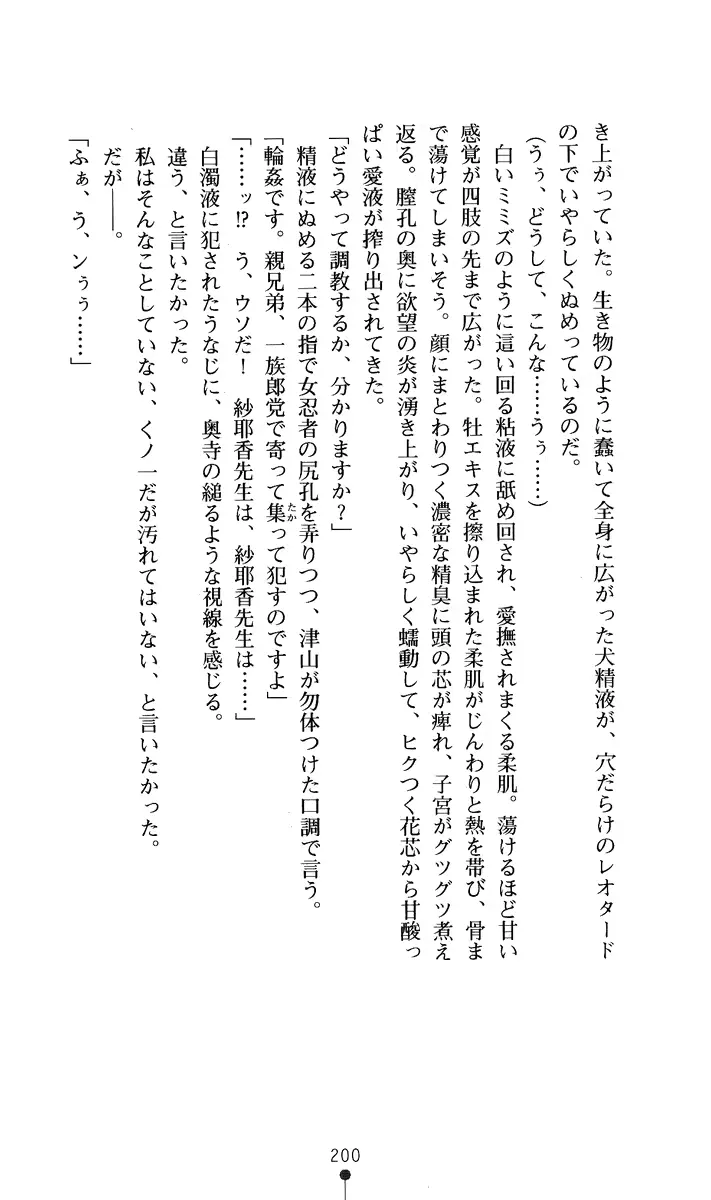 き上がっていた。生き物のように蠢いて全身に広がった犬精液が、穴だらけのレオタード
の下でいやらしくぬめっているのだ。
(うぅ、どうして、こんな……うぅ……)
白いミミズのように這い回る粘液に舐め回され、愛撫されまくる柔肌。蕩けるほど甘い
感覚が四肢の先まで広がった。牡エキスを擦り込まれた柔肌がじんわりと熱を帯び、骨ま
で蕩けてしまいそう。顔にまとわりつく濃密な精臭に頭の芯が痺れ、子宮がグツグツ煮え
返る。膣孔の奥に欲望の炎が湧き上がり、いやらしく蠕動して、ヒクつく花芯から甘酸っ
ぱい愛液が搾り出されてきた。
「どうやって調教するか、分かりますか？」
精液にぬめる二本の指で女忍者の尻孔を弄りつつ、津山が勿体つけた口調で言う。
「輪姦です。親兄弟、一族郎党で寄って集たかって犯すのですよ」
「……ッ!?　う、ウソだ！　紗耶香先生は、紗耶香先生は……」
白濁液に犯されたうなじに、奥寺の縋るような視線を感じる。
違う、と言いたかった。
私はそんなことしていない、くノ一だが汚れてはいない、と言いたかった。
だが――。
「ふぁ、う、ンぅぅ……」
200